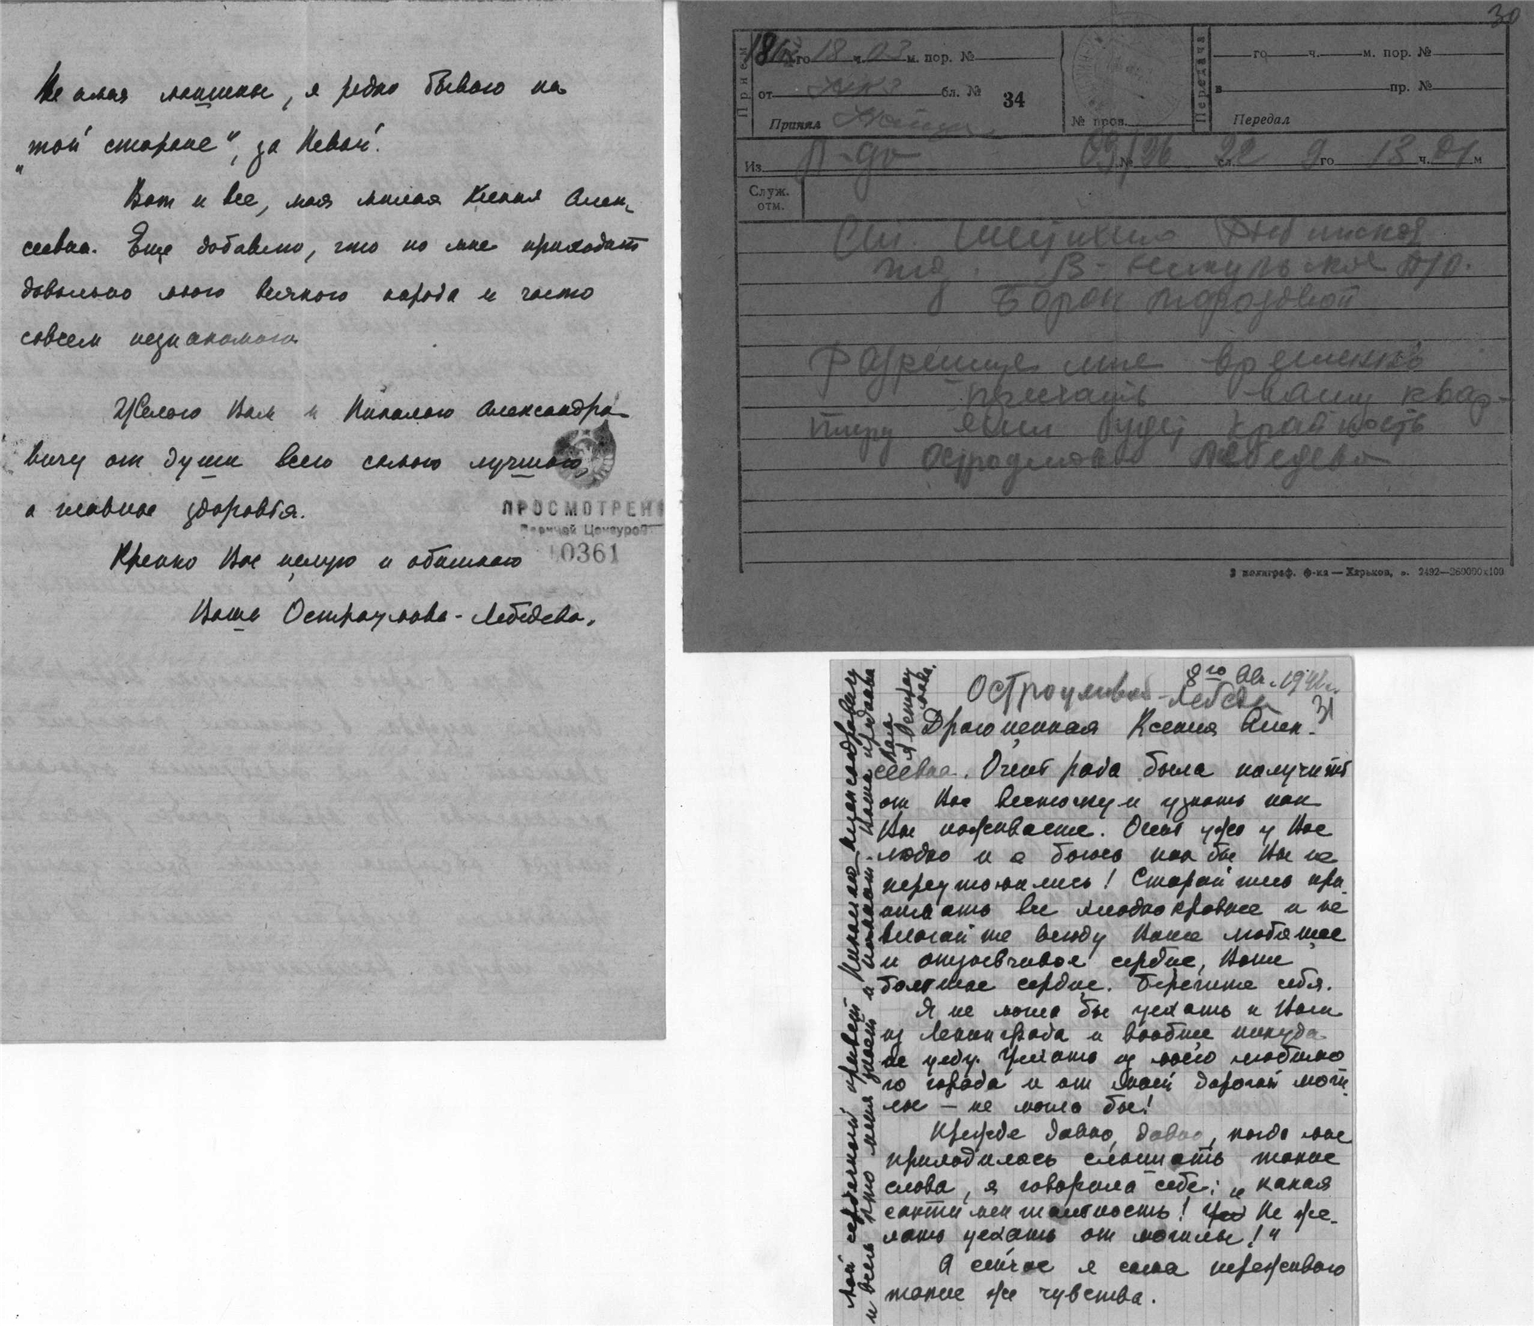 Не имея машины, я редко бываю на
„той стороне“, за Невой.
Вот и все, моя милая Ксения Алек-
сеевна. Еще добавлю, что ко мне приходит
довольно много всякого народа и часто
совсем незнакомого
Желаю Вам и Николаю Александро-
вичу от души всего самого лучшего,
а главное здоровья.
Крепко Вас целую и обнимаю
Ваша Остроумова-Лебедева.
ПРОСМОТРЕНО
Военной Цензурой
10361
30
Прием
18 го 18 ч. 03 м. пор. №
от бл. № 34
Принял
№ пров.
Передача
го ч. м. пор. №
в пр. №
Передал
Из Л-да 09/26 № 22 сл. 9 го 13 ч. 01 м
Служ.
отм.
Ст Шестихино Рыбинской
жд. В-Никульское п/о.
Борок Морозовой
Разрешите мне временно
вашу квар-
тиру если будет крайность
Остроумова Лебедева
3 полиграф. ф-ка — Харьков, з. 2492—260000x100
Остроумова-Лебедева
8го Ав. 1942г.
31
Драгоценная Ксения Алек-
сеевна. Очень рада была получить
от Вас весточку и узнать как
Вы поживаете. Очень уже у Вас
людно и я боюсь как бы Вы не
переутомились! Старайтесь при-
нимать все хладнокровнее и не
влагайте всюду Ваше любящее
и отзывчивое сердце, Ваше
больное сердце. Берегите себя.
Я не могла бы уехать к Вам
из Ленинграда и вообще никуда
не уеду. Уехать из моего любимо
го города и от моей дорогой моги
лы — не могла бы!
Прежде давно, давно, когда мне
приходилось слышать такие
слова, я говорила себе: „какая
сантиментальность! Не же-
лать уехать от могилы!“
А сейчас я сама переживаю
такие же чувства.
Мой сердечный привет Николаю Александровичу
и всем кто меня знает и помнит. Ваша преданная
Вам
А Остроу
мова.